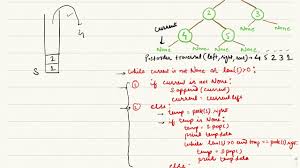 2 3
current
4 5 None None
None None None None
4
Postorder traversal (left, right, root) → 4 5 2 3 1
2
1
S
while current is not None or len() > 0:
① if current is not None:
S.append(current)
current = current.left
② else:
temp = peek().right
if temp is None:
temp = S.pop()
print temp.data
while len() > 0 and temp = peek().right
temp = S.pop()
print temp.data
else: